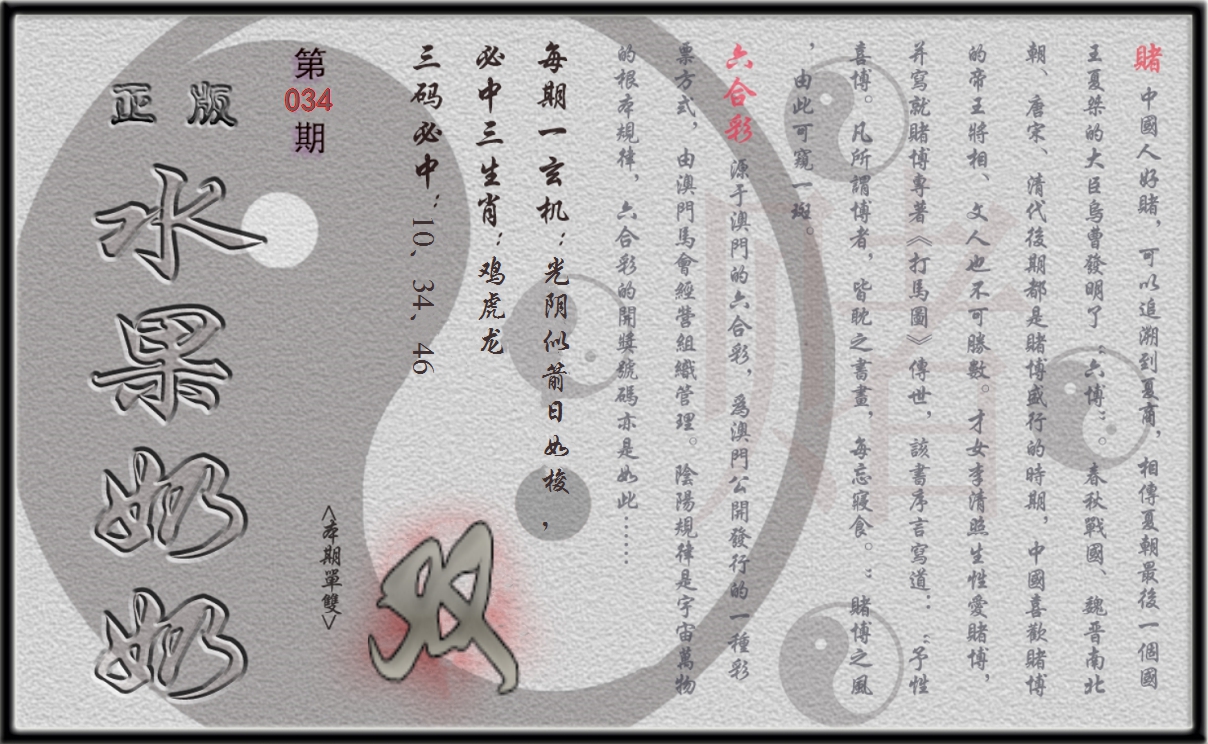 賭 中國人好賭，可以追溯到夏商，相傳夏朝最後一個國
王夏桀的大臣烏曹發明了“六博”。春秋戰國、魏晉南北
朝、唐宋、清代後期都是賭博盛行的時期，中國喜歡賭博
的帝王將相、文人也不可勝數。才女李清照生性愛賭博，
并寫就賭博專著《打馬圖》傳世，該書序言寫道：“予性
喜博。凡所謂博者，皆耽之書畫，每忘寢食。：賭博之風
，由此可窺一斑。
六合彩 源于澳門的六合彩，為澳門公開發行的一種彩
票方式，由澳門馬會經營組織管理。陰陽規律是宇宙萬物
的根本規律，六合彩的開獎號碼亦是如此……
每期一玄机：光阴似箭日如梭，
必中三生肖：鸡虎龙
三码必中：10、34、46
<本期單雙>
双
第
034
期
正版
水果奶奶
赌